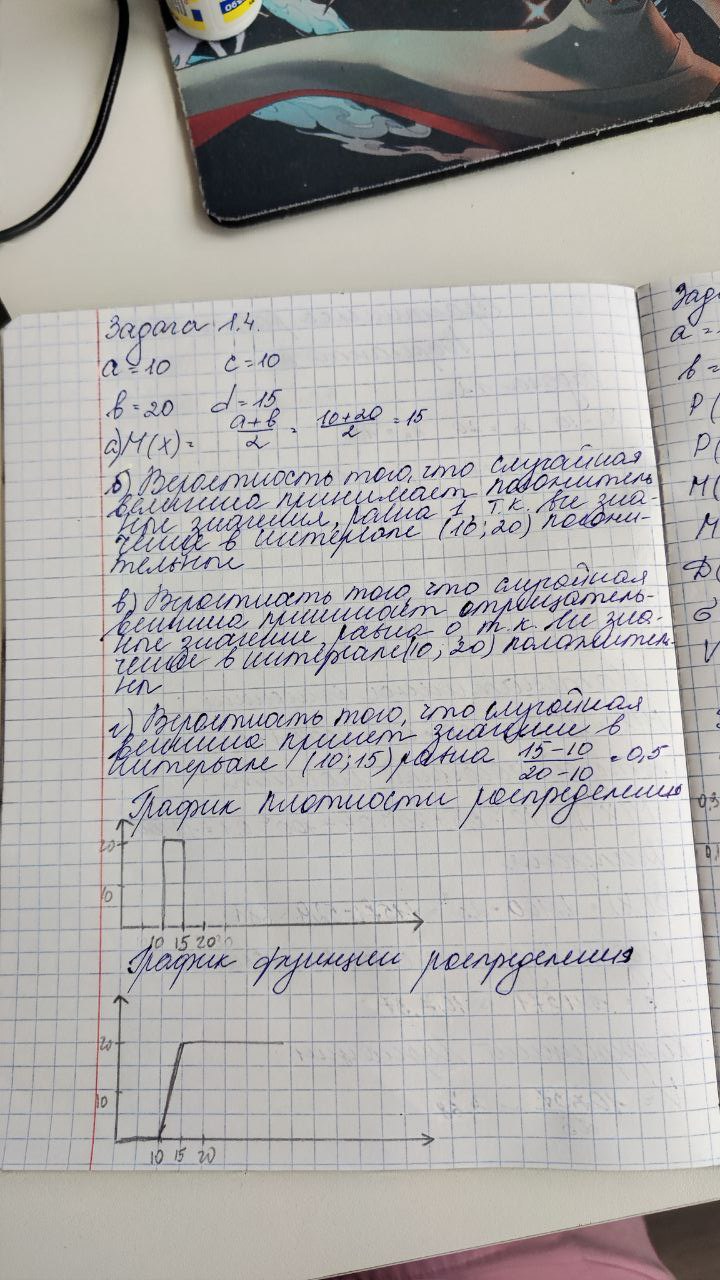 Задача 1.4.
a=10 c=10
в=20 d=15
а)M(X)= a+в/2 = 10+20/2 =15
б) Вероятность того, что случайная
величина принимает положитель
ные значения, равна 1, т.к. все зна-
чения в интервале (10;20) положи-
тельные
в) Вероятность того, что случайная
величина принимает отрицатель-
ные значение, равна 0 т.к. все зна-
чение в интервале(10; 20) положител-
ны
г) Вероятность того, что случайная
величина примет значении в
интервале (10;15) равна 15-10/20-10 =0,5
График плотности распределения
20
10
10 15 20
График функции распределения
20
10
10 15 20
Зада
a=
в=
P(
P(
M(
M
D(
σ
V
0,3